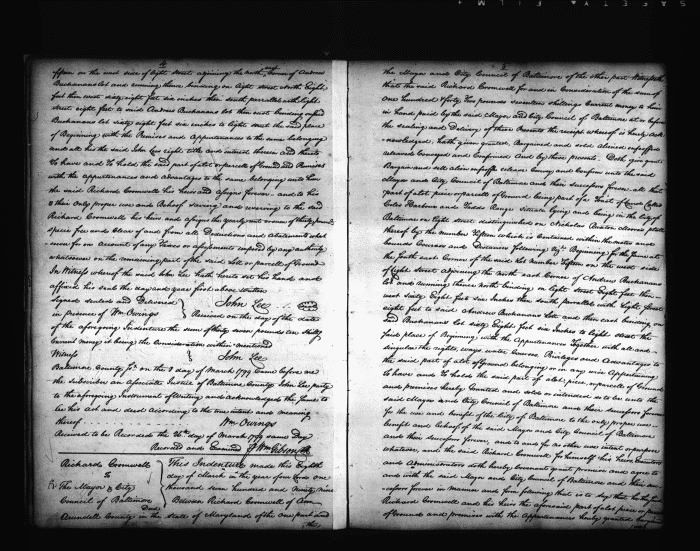 offson on the west side of light street adjoining the north east Corner of Andrew
Buchanans lot and running thence binding on light street North Eight
feet thence west sixty eight feet six inches thence south parralel with light
street eight feet to said Andrew Buchanans lot thence east binding on said
Buchanans lot sixty eight feet six inches to light street the said place
of Beginning with the Premises and Appurtenances to the same belonging
and all his the said John Lee right title and interest therein and thereto
To have and To hold the said part of a lot or parcell of Ground and Premises
with the appurtenances and advantages to the same belonging unto him
the said Richard Cromwell his heirs and assigns forever and to his
& their only proper use and Behoof saving and reserving to the said
Richard Cromwell his heirs and assigns the yearly rent of thirty pounds
specie free and Clear of and from all Deductions and abatements what
soever for on Account of any Taxes or assessments imposed by any authority
whatsoever on the remaining part of the said lot or parcell of Ground
In Witness whereof the said John Lee hath hereto set his hand and
affixed his seal the day and year first above written
Signed sealed and Delivered John Lee
in presence of Wm Owings Received on the day of the date
of the aforegoing Indenture the sum of thirty seven pounds ten shillings
current money it being the Consideration within mentioned
Witness John Lee
Baltimore County Ss. on the 9 day of March 1799 Came before me
the subscriber an Associate Justice of Baltimore County John Lee party
to the aforegoing Instrument of Writing and acknowledged the same to
be his Act and deed according to the true intent and meaning
thereof Wm Owings
Received to be Recorded the 26th day of March 1799 same Day
Recorded and Examined Wm Gibson Clk
Richard Cromwell This Indenture made this Eighth
To day of March in the year of our Lord one
The Mayor & City thousand seven hundred and Ninety Nine
Council of Baltimore Between Richard Cromwell of Ann
Deed
Arundell County in the state of Maryland of the one part and
the
the Mayor and City Council of Baltimore of the other part Witnesseth
that the said Richard Cromwell for and in Consideration of the sum of
one hundred & forty two pounds seventeen shillings Current money to him
in hand paid by the said Mayor and City Council of Baltimore at or before
the sealing and Delivery of these Presents the receipt whereof is hereby ack
nowledged hath given granted Bargained and sold aliened enfeoffed
released Conveyed and Confirmed and by these presents Doth give grant
Bargain and sell alien enfeoffe release Convey and Confirm unto the said
Mayor and City Council of Baltimore and their successors forever all that
part of a lot piece or parcell of Ground being part of a Tract of Land Called
Coles Harbour and Todds Range situate lying and being in the City of
Baltimore on light street distinguished on Nicholas Bratton
thereof by the number Fifteen which is Contained within the metes and
bounds Courses and Distances following viz. Beginning for the same at
the south east Corner of the said lot number fifteen on the west side
of light street adjoining the north east Corner of Andrew Buchanans
lot and running thence North binding on light street Eight feet thence
west sixty Eight feet six Inches then south parralel with light street
eight feet to said Andrew Buchanans lott and then east binding on
said Buchanans lot sixty Eight feet six Inches to light street the
first place of Beginning with the appurtenances Together with all and
singular the rights ways water Courses Privileges and advantages to
the said part of a lot of Ground belonging or in any wise Appertaining
to have and To hold the said part of a lot piece or parcell of Ground
and premises hereby Granted and sold or intended so to be unto the
said Mayor and City Council of Baltimore and their successors forever
for the use and benefit of the City of Baltimore to the only proper use
benefit and behoof of the said Mayor and City Council of Baltimore
and their successors forever and to and for no other use intent or purpose
whatever and the said Richard Cromwell for himself his heirs Executors
and Administrators doth hereby Covenant grant promise and agree to
and with the said Mayor and City Council of Baltimore and their suc
cessors forever in Manner and form following that is to say that he the said
Richard Cromwell and his heirs the aforesaid part of a lot piece or parcell
of Ground and premises with the Appurtenances hereby granted